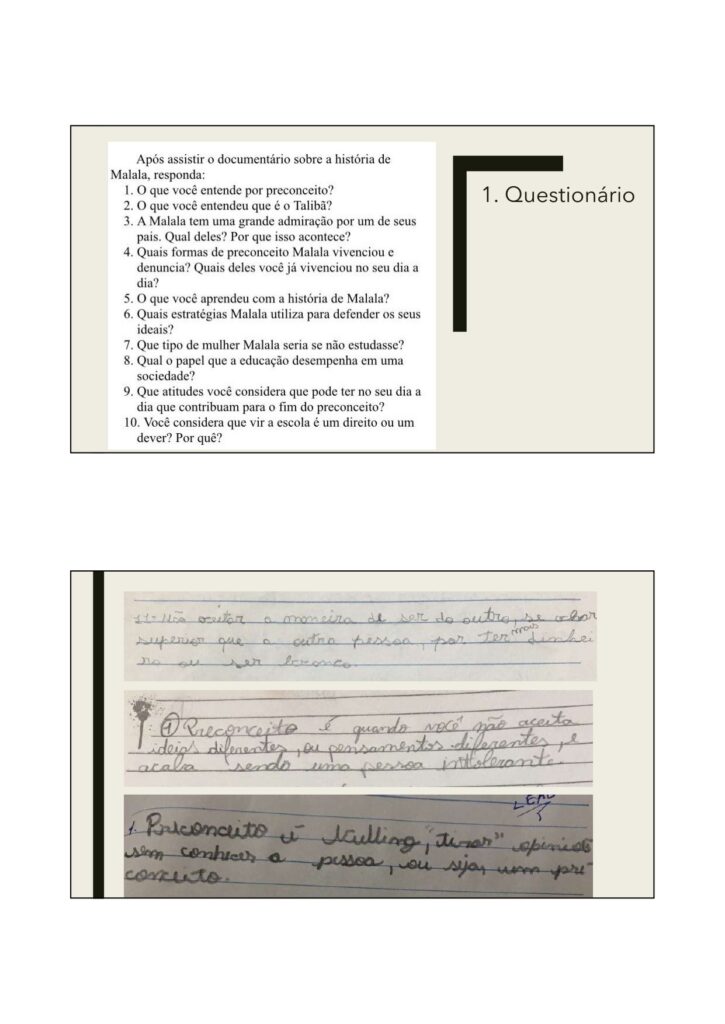 Após assistir o documentário sobre a história de
Malala, responda:
1. O que você entende por preconceito?
2. O que você entendeu que é o Talibã?
3. A Malala tem uma grande admiração por um de seus
pais. Qual deles? Por que isso acontece?
4. Quais formas de preconceito Malala vivenciou e
denuncia? Quais deles você já vivenciou no seu dia a
dia?
5. O que você aprendeu com a história de Malala?
6. Quais estratégias Malala utiliza para defender os seus
ideais?
7. Que tipo de mulher Malala seria se não estudasse?
8. Qual o papel que a educação desempenha em uma
sociedade?
9. Que atitudes você considera que pode ter no seu dia a
dia que contribuam para o fim do preconceito?
10. Você considera que vir a escola é um direito ou um
dever? Por quê?
1. Questionário
Não aceitar a maneira de ser do outro, se achar
superior que a outra pessoa, por ter mais dinhei
ro ou ser branco.
1 Preconceito é quando você não aceita
ideias diferentes, ou pensamentos diferentes, e
acaba sendo uma pessoa inttolerante.
1. Preconceito é opinião
sem conhecer a pessoa, ou seja, um pré
conceito.